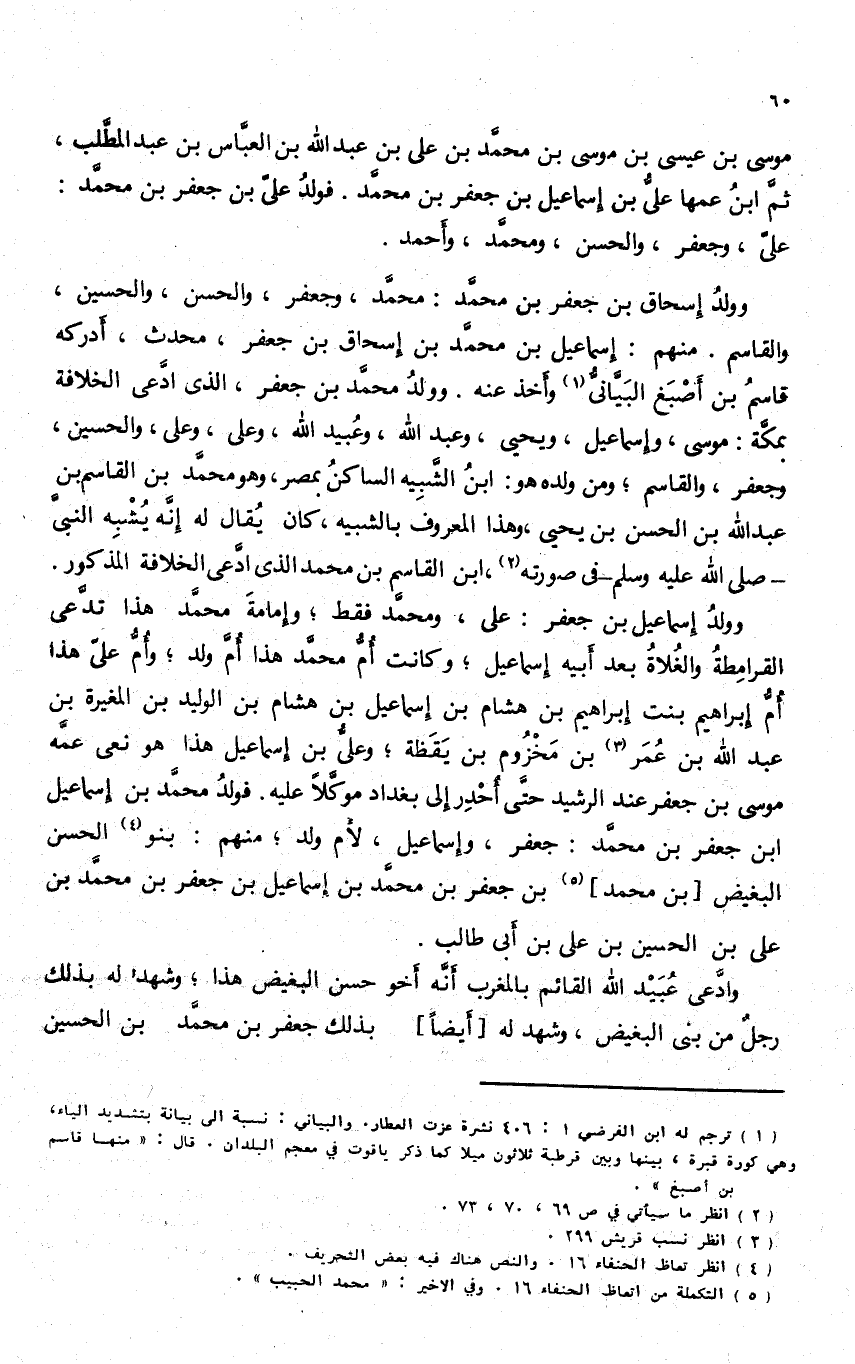 ٦٠
موسى بن عيسى بن موسى بن محمَّد بن على بن عبد الله بن العبَّاس بن عبد المطَّلب ،
ثمَّ ابنُ عمها علىُّ بن إسماعيل بن جعفر بن محمَّد . فولدُ علىّ بن جعفر بن محمَّد :
علىّ ، وجعفر ، والحسن ، ومحمَّد ، وأَحمد .
وولدُ إسحاق بن جعفر بن محمَّد : محمَّد ، وجعفر ، والحسن ، والحسين ،
والقاسم . منهم : إسماعيل بن محمَّد بن إسحاق بن جعفر ، محدث ، أَدركه
قاسمُ بن أَصْبَغ البَيَّانىُّ (١) وأَخذ عنه . وولدُ محمَّد بن جعفر ، الذى ادَّعى الخلافة
بمكَّة : موسى ، وإسماعيل ، ويحيى ، وعبد الله ، وعُبيد الله ، وعلى ، وعلى ، والحسين ،
وجعفر ، والقاسم ؛ ومن ولده هو : ابنُ الشَّبِيه الساكنُ بمصر، وهو محمَّد بن القاسم بن
عبدالله بن الحسن بن يحيى ، وهذا المعروف بالشبيه ، كان يُقال له إنَّه يُشْبِه النبىَّ
ــ صلى الله عليه وسلم ــ فى صورته (٢) ، ابن القاسم بن محمد الذى ادَّعى الخلافة المذكور .
وولدُ إسماعيل بن جعفر : على ، ومحمَّد فقط ؛ وإمامةَ محمَّد هذا تدَّعى
القرامِطةُ والغُلاةُ بعد أَبيه إسماعيل ؛ وكانت أُمُّ محمَّد هذا أُمَّ ولد ؛ وأُمُّ علىّ هذا
أُمُّ إبراهيم بنت إبراهيم بن هشام بن إسماعيل بن هشام بن الوليد بن المغيرة بن
عبد الله بن عُمَر (٣) بن مَخْزُوم بن يَقَظة ؛ وعلىُّ بن إسماعيل هذا هو نعى عمَّه
موسى بن جعفر عند الرشيد حتَّى أُحْدِر إلى بغداد موكَّلاً عليه . فولدُ محمَّد بن إسماعيل
ابن جعفر بن محمَّد : جعفر ، وإسماعيل ، لأُم ولد ؛ منهم : بنو (٤) الحسن
البغيض [ بن محمد ] (٥) بن جعفر بن محمَّد بن إسماعيل بن جعفر بن محمَّد بن
على بن الحسين بن على بن أَبى طالب .
وادَّعى عُبَيْد الله القائم بالمغرب أَنَّه أَخو حسن البغيض هذا ؛ وشهد له بذلك
رجلٌ من بنى البغيض ، وشهد له [ أَيضاً ] بذلك جعفر بن محمَّد بن الحسين
( ١ ) ترجم له ابن الفرضي ١ : ٤٠٦ نشرة عزت العطار . والبياني : نسبة الى بيانة بتشديد الياء،
وهي كورة قبرة ، بينها وبين قرطبة ثلاثون ميلا كما ذكر ياقوت في معجم البلدان . قال : « منها قاسم
بن أصبغ » .
( ٢ ) انظر ما سيأتي في ص ٦٩ ، ٧٠ ، ٧٣ .
( ٣ ) انظر نسب قريش ٢٩٩ .
( ٤ ) انظر تعاظ الحنفاء ١٦ . والنص هناك فيه بعض التحريف .
( ٥ ) التكملة من اتعاظ الحنفاء ١٦ . وفي الاخير : « محمد الحبيب » .